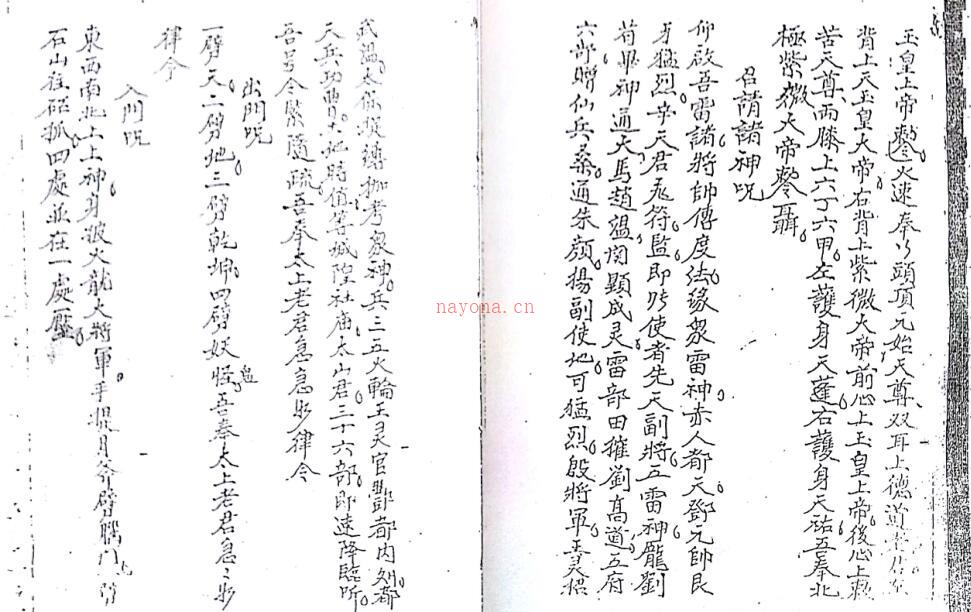 玉皇上帝鑒火速奉行頭頂元始天尊双耳上德道
背上天玉皇大帝右背上紫微大帝前心上玉皇上帝後心上救
苦天尊兩膝上六丁六甲左護身天蓬右護身天祐吾奉北
極紫微大帝聻聶
召請諸神咒
仰啟吾雷諸將帥傳度法緣眾雷神赤人都天鄧元帥良
才猛烈辛天君飛符監即陟使者先天副將五雷神龐劉
苟畢神通大馬趙溫関顯成灵雷部田㩁劉高道五府
六部贈仙兵桑通朱顏揚副使地可猛烈殷將軍孟灵招
武溫太保溪縛枷考眾神兵三五火輪王灵官酆都內外都
天兵功曹土地時值等城隍社庙太山君三十六部即速降臨听
吾号令緊隨疏吾奉太上老君急急如律令
出門咒
一劈天二劈地三劈乾坤四劈妖怪鬼吾奉太上老君急々如
律令
入門咒
東西南北上上神身披火龍大將軍手提月斧劈腦門
石山在砳抓四處並在一處壓
nayona.cn